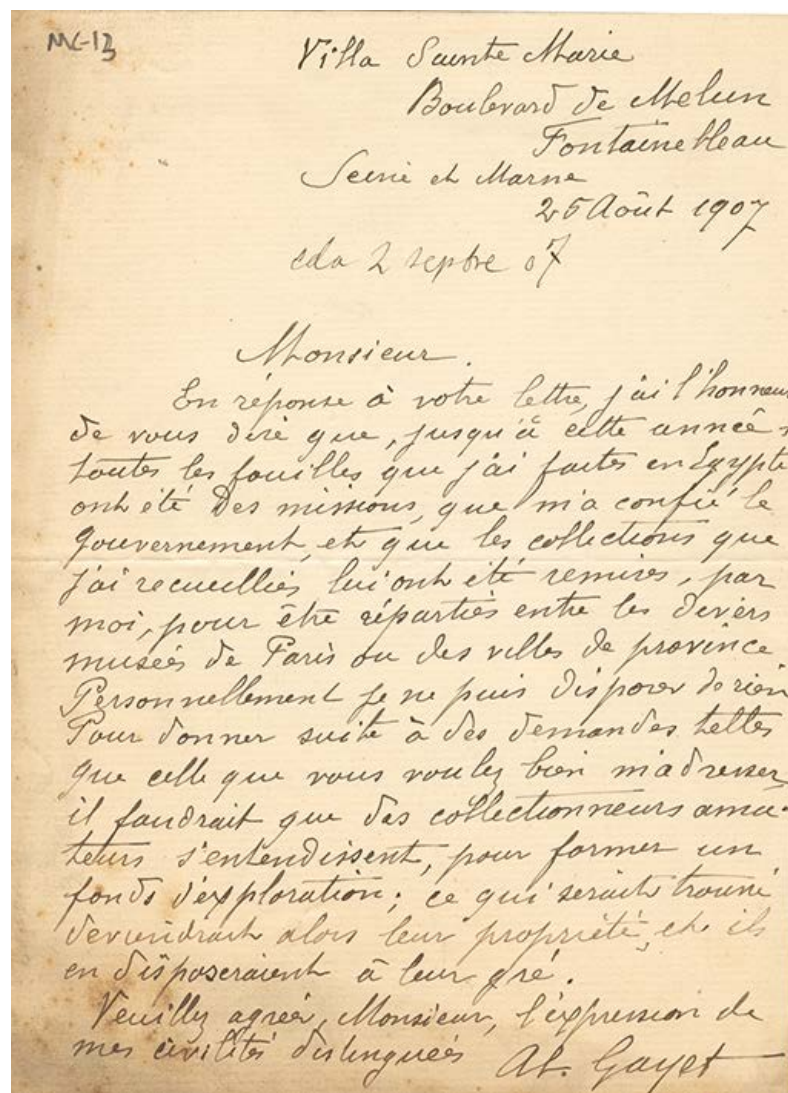 MC-13
Villa Sainte Marie
Boulevard de Melun
Fontainebleau
Seine et Marne
25 Août 1907
2 septbre 07
Monsieur.
En réponse à votre lettre, j'ai l'honneur
de vous dire que, jusqu'à cette année
toutes les fouilles que j'ai faites en Egypte
ont été des missions, que m'a confié le
gouvernement, et que les collections que
j'ai recueillies lui ont été remises, par
moi, pour être réparties entre les divers
musées de Paris ou des villes de province
Personnellement je ne puis disposer de rien
Pour donner suite à des demandes telles
que celle que vous voulez bien m'adresser,
il faudrait que des collectionneurs ama-
teurs s'entendissent, pour former un
fonds d'exploration; ce qui serait trouvé
deviendrait alors leur propriété, et ils
en disposeraient à leur gré.
Veuillez agréer, Monsieur, l'expression de
mes civilités distinguées Al. Gayet